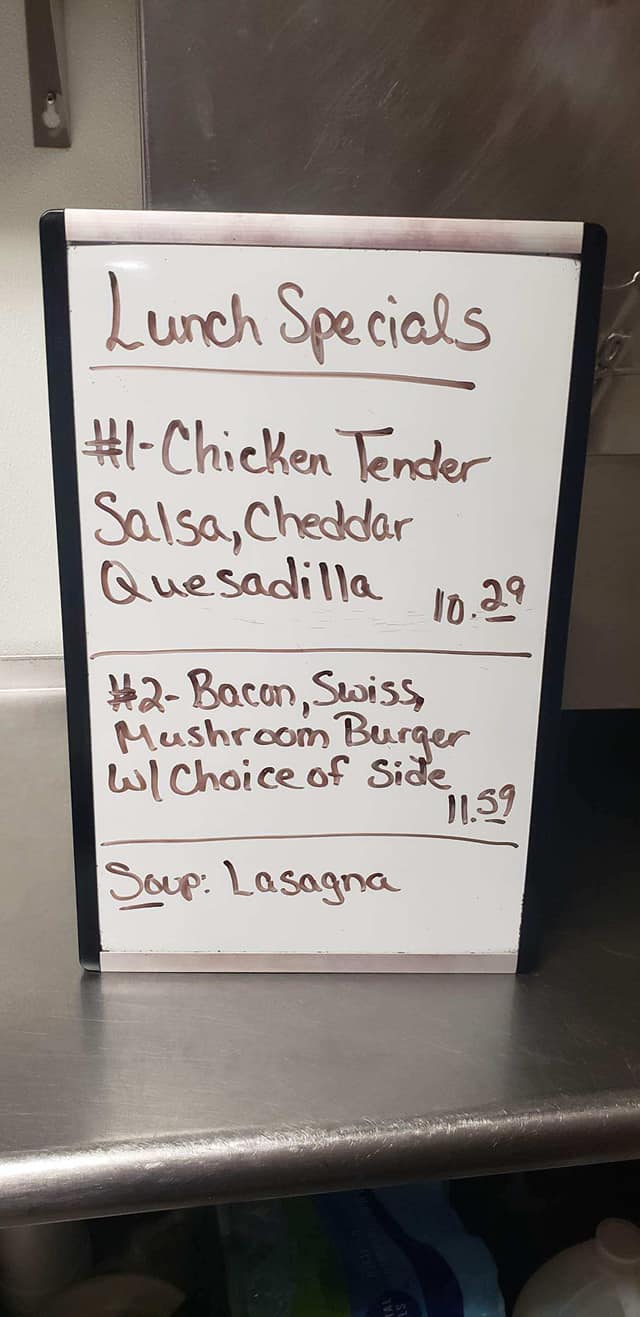 Lunch Specials
#1-Chicken Tender
Salsa, Cheddar
Quesadilla 10.29
#2- Bacon, Swiss,
Mushroom Burger
W/ Choice of Side
11.59
Soup: Lasagna